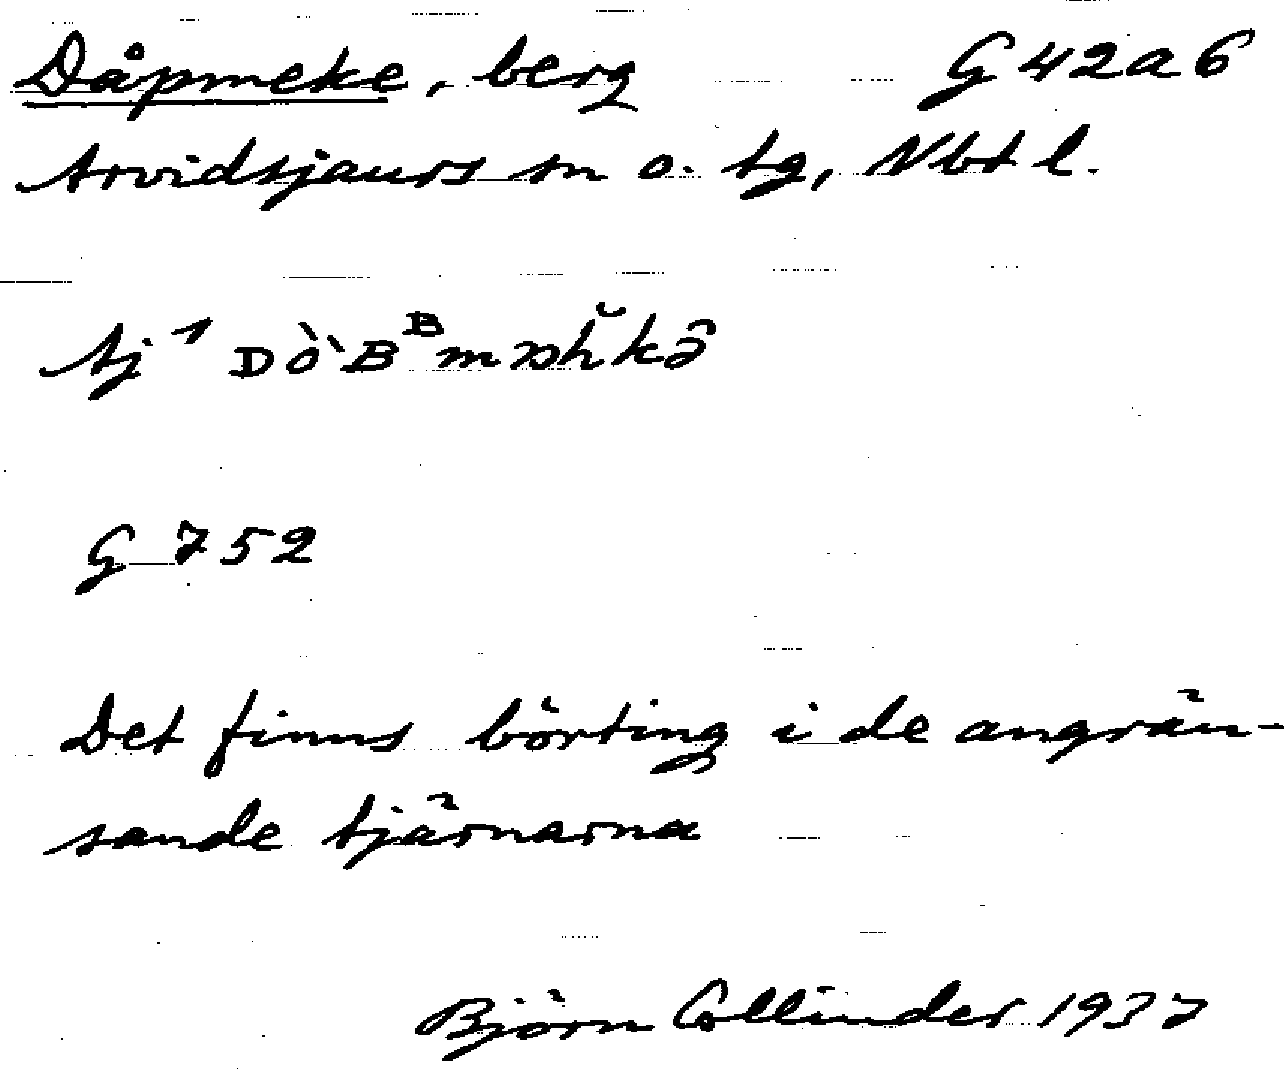 Dåpmeke, berg G 42 a 6
Arvidsjaurs sn o. tg, Vbt l.
Aj
G 752
Det finns börting i de angrän-
sande tjärnarna
Björn Collinder 1937